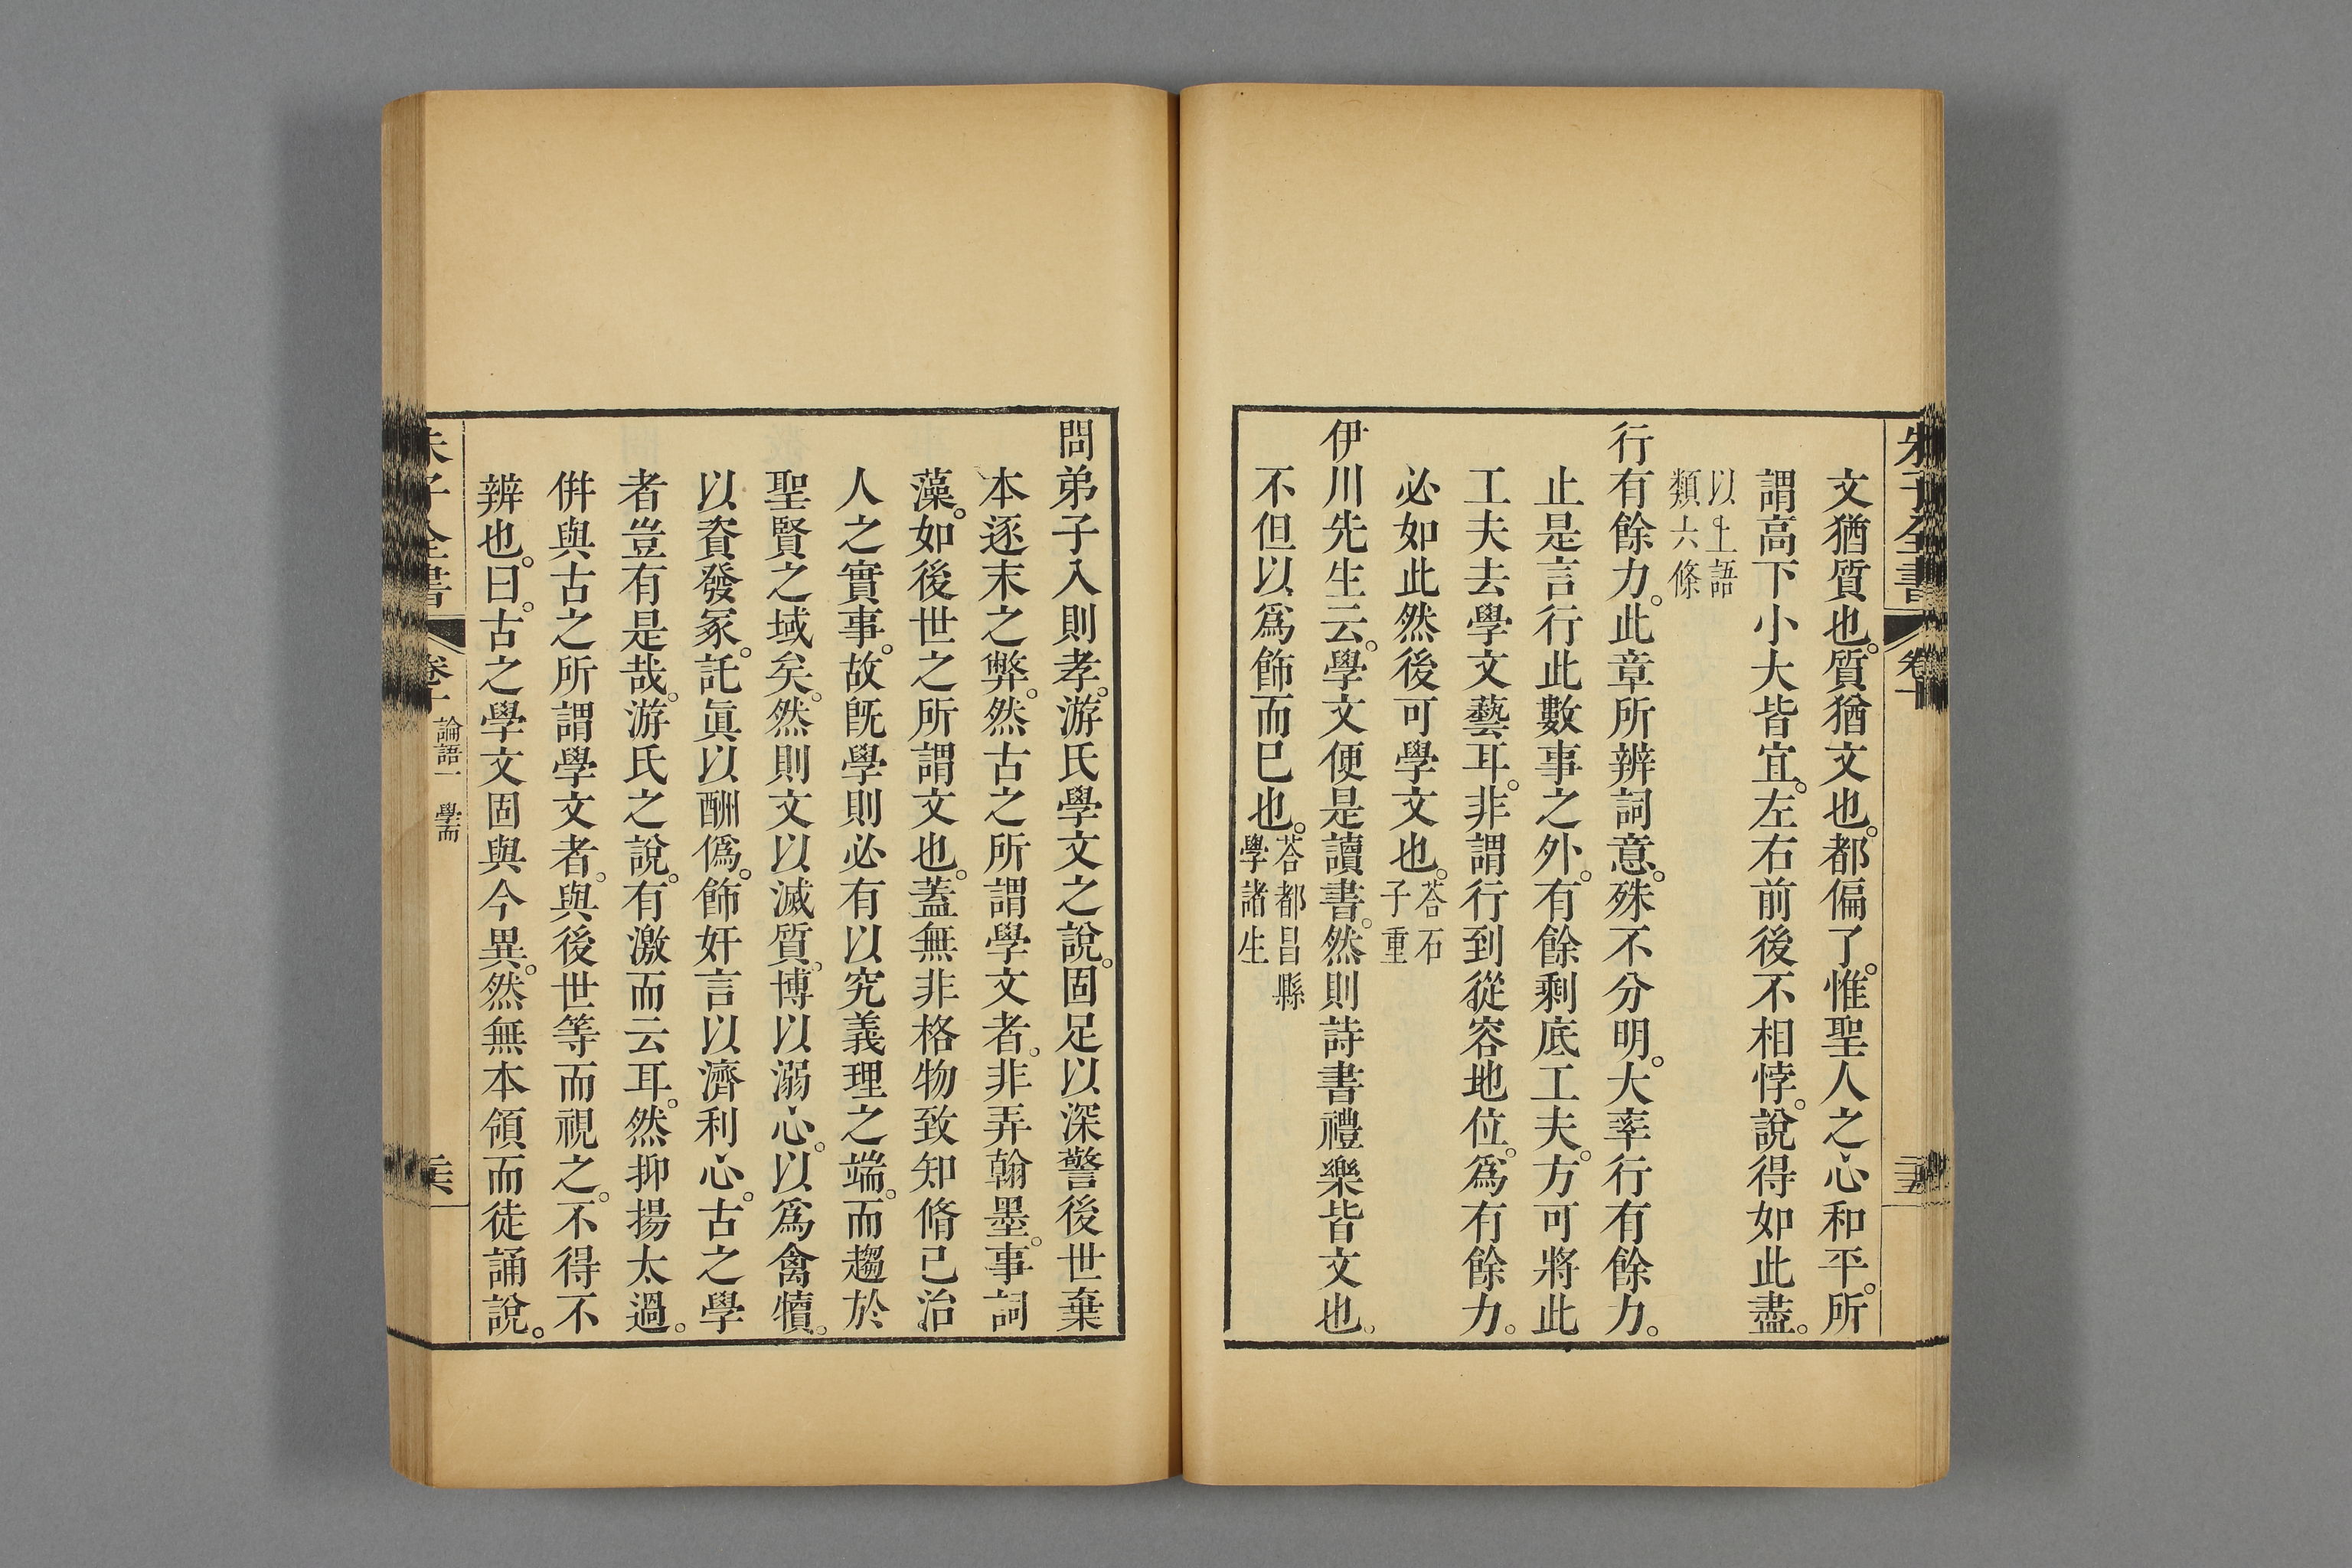 朱子全書 卷十
文猶質也。質猶文也。都偏了。惟聖人之心和平。所
謂高下小大皆宜。左右前後不相悖。說得如此盡。
以上語
類六條
行有餘力。此章所辨詞意。殊不分明。大率行有餘力。
止是言行此數事之外。有餘剩底工夫。方可將此
工夫去學文藝耳。非謂行到從容地位。爲有餘力。
必如此然後可學文也。荅石
子重
伊川先生云。學文便是讀書。然則詩書禮樂皆文也。
不但以爲飾而已也。荅都昌縣
學諸生
問弟子入則孝。游氏學文之說。固足以深警後世棄
本逐末之弊。然古之所謂學文者。非弄翰墨。事詞
藻。如後世之所謂文也。蓋無非格物致知脩己治
人之實事。故旣學則必有以究義理之端。而趨於
聖賢之域矣。然則文以滅質。博以溺心。以爲禽犢。
以資發冢。託眞以酬僞。飾奸言以濟利心。古之學
者豈有是哉。游氏之說。有激而云耳。然抑揚太過。
併與古之所謂學文者。與後世等而視之。不得不
辨也。曰。古之學文固與今異。然無本領而徒誦說。
朱子全書 卷十 論語一 學而